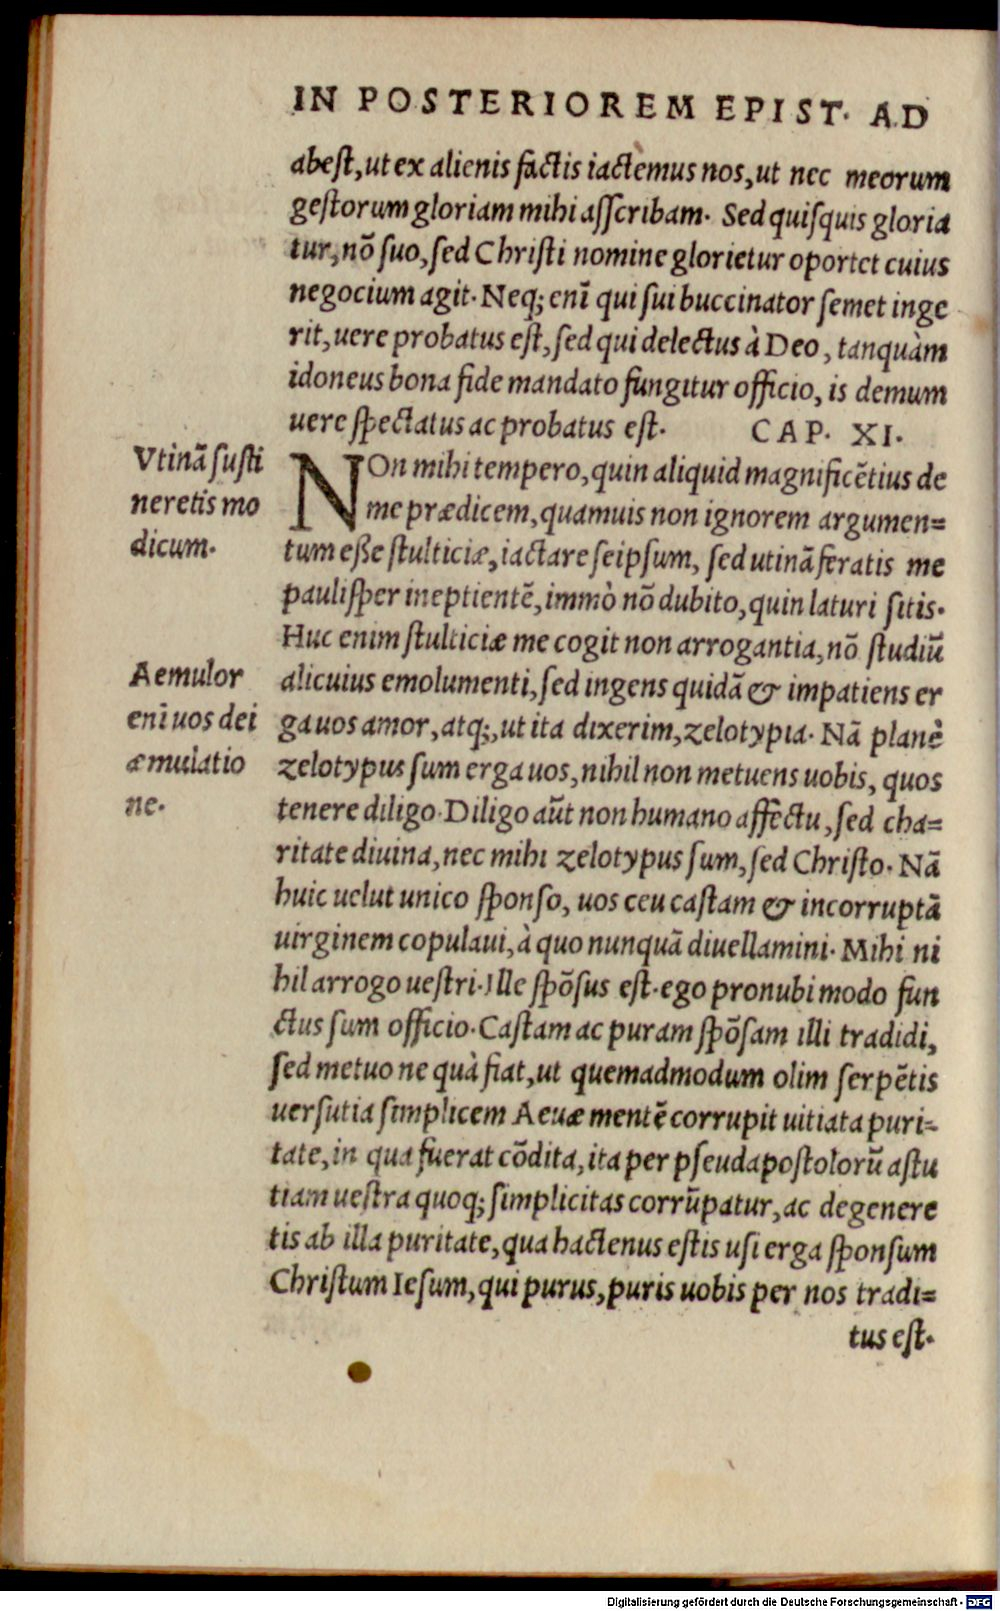 IN POSTERIOREM EPIST. AD
abest, ut ex alienis factis iactemus nos, ut nec meorum
gestorum gloriam mihi asscribam. Sed quisquis gloria
tur, nõ suo, sed Christi nomine glorietur oportet cuius
negocium agit. Neq; enĩ qui sui buccinator semet inge
rit, uere probatus est, sed qui delectus à Deo, tanquàm
idoneus bona fide mandato fungitur officio, is demum
uere spectatus ac probatus est. CAP. XI.
Vtinã susti
neretis mo
dicum.
NOn mihi tempero, quin aliquid magnificẽtius de
me prædicem, quamuis non ignorem argumen=
tum esse stulticiæ, iactare seipsum, sed utinã feratis me
paulisper ineptientẽ, immò nõ dubito, quin laturi sitis.
Huc enim stulticiæ me cogit non arrogantia, nõ studiũ
Aemulor
enĩ uos dei
æmulatio
ne.
alicuius emolumenti, sed ingens quidã & impatiens er
ga uos amor, atq;, ut ita dixerim, zelotypia. Nã planè
zelotypus sum erga uos, nihil non metuens uobis, quos
tenere diligo. Diligo aũt non humano affectu, sed cha=
ritate diuina, nec mihi zelotypus sum, sed Christo. Nã
huic uelut unico sponso, uos ceu castam & incorruptã
uirginem copulaui, à quo nunquã diuellamini. Mihi ni
hil arrogo uestri. Ille spõsus est. ego pronubi modo fun
ctus sum officio. Castam ac puram spõsam illi tradidi,
sed metuo ne quà fiat, ut quemadmodum olim serpẽtis
uersutia simplicem Aeuæ mentẽ corrupit uitiata puri=
tate, in qua fuerat cõdita, ita per pseudapostolorũ astu
tiam uestra quoq; simplicitas corrũpatur, ac degenere
tis ab illa puritate, qua hactenus estis usi erga sponsum
Christum Iesum, qui purus, puris uobis per nos tradi=
tus est.
Digitalisierung gefördert durch die Deutsche Forschungsgemeinschaft - DFG